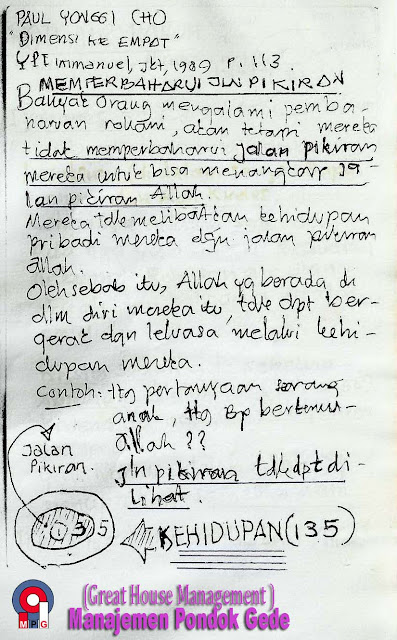 PAUL YONGGI CHO
"DIMENSI KE EMPAT"
YPI immanuel, Jkt, 1989 P. 113.
MEMPERBAHARUI JLN PIKIRAN
Banyak orang mengalami pemba-
haruan rohani, akan tetapi mereka
tidak memperbaharui jalan pikiran
mereka untuk bisa menangkap ja-
lan pikiran Allah.
Mereka tdk melibatkan kehidupan
pribadi mereka dgn jalan pikiran
allah.
Oleh sebab itu, Allah yg berada di
dlm diri mereka itu, tdk dpt ber-
gerak dgn leluasa melalui kehi-
dupan mereka.
Contoh: ttg pertanyaan seorang
anak, ttg Bp bertemu-
allah ??
Jalan
Pikiran.
Jln pikiran tdk dpt di-
lihat.
35
KEHIDUPAN (135)
(Great House Management)
Manajemen Pondok Gede
MPG